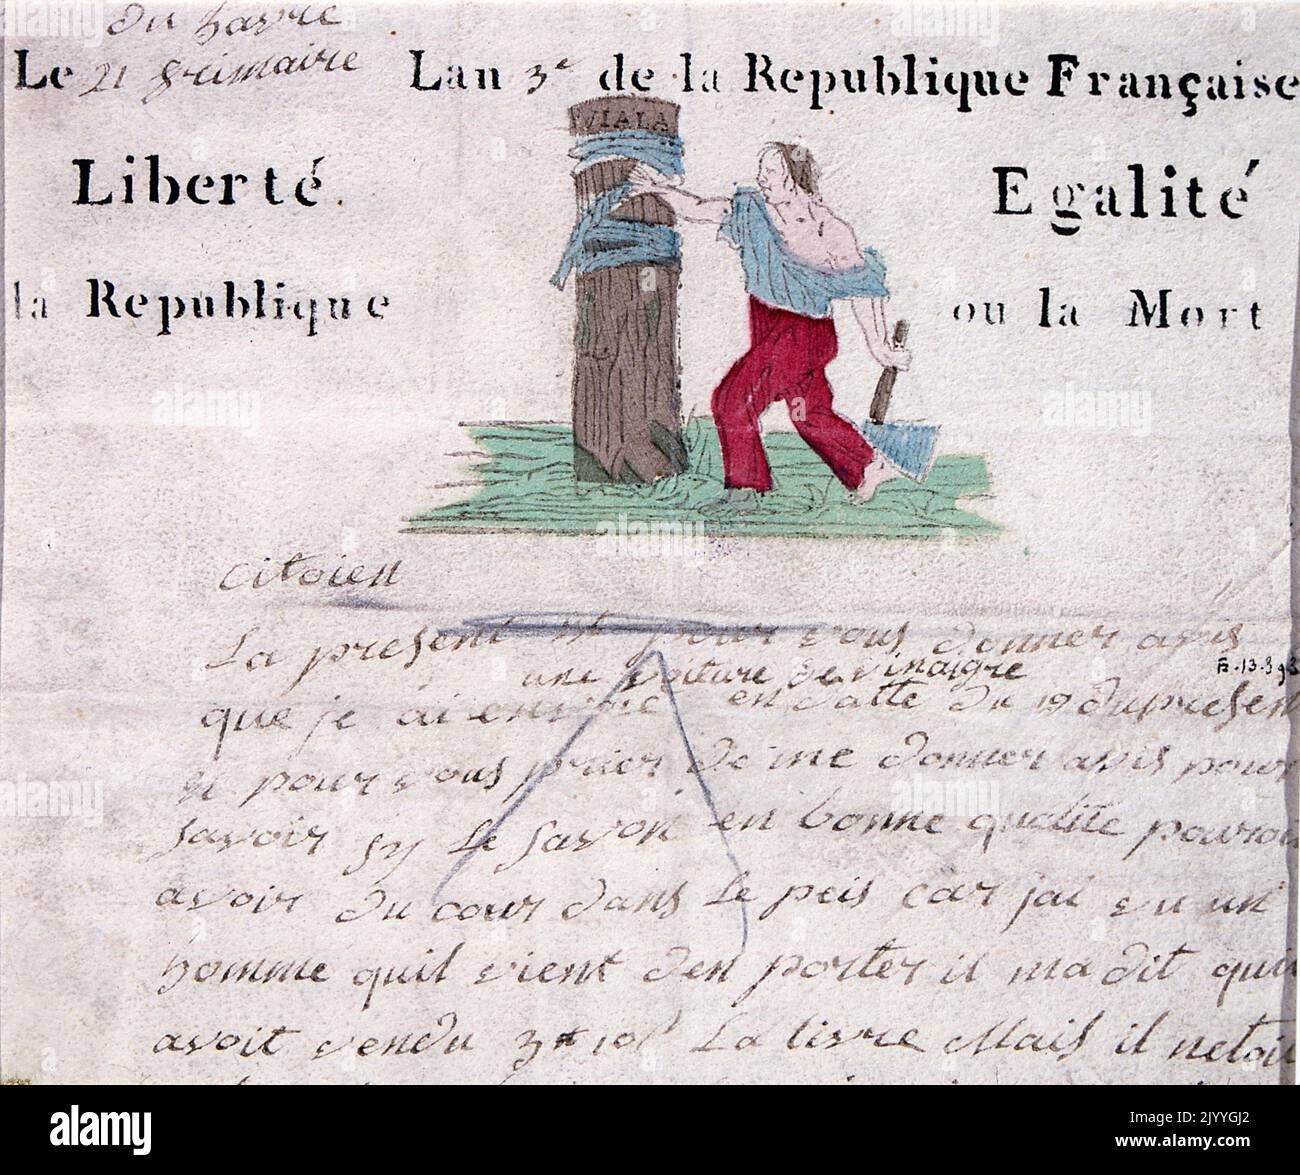 du havre
Le 21 frimaire Lan 3e de la Republique Française
VIALA
Liberté Egalité
la Republique ou la Mort
citoien
La present est pour vous donner avis
une voiture de vinaigre
que je ai envoié en datte du 19 du present
et pour vous prier de me donner avis pour
savoir sy le savon en bonne qualité pouroi
avoir du cour dans le peis car jai vu un
homme quil vient den porter il ma dit quil
avoit vendu 3# 10s La livre Mais il netoi
alamy
Image ID: 2JYYGJ2
www.alamy.com